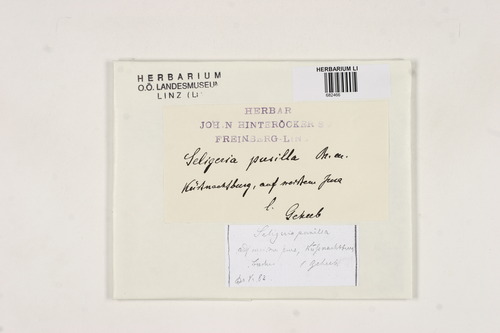 HERBARIUM
O.Ö. LANDESMUSEUM
LINZ (LI)
HERBARIUM LI
682466
HERBAR
JOHAN HINTERÖCKER S
FREINBERG-LINZ
Seligeria pusilla Br. eu.
Küßnachtburg, auf weißem Jura
l. Geheeb
Seligeria pusilla
auf weißem Jura, Küßnachtburg
l. Geheeb